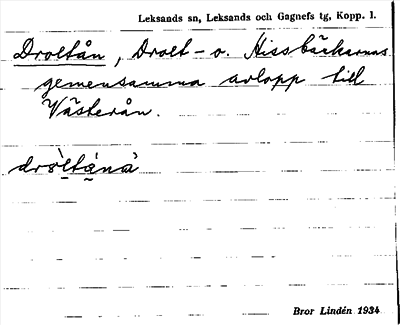 Leksands sn, Leksands och Gagnefs tg, Kopp. l.
Droltån, Drolt- o. Hissbäckarnas
gemensamma avlopp till
Västerån.
drò̱ltá̱nà
Bror Lindén 1934